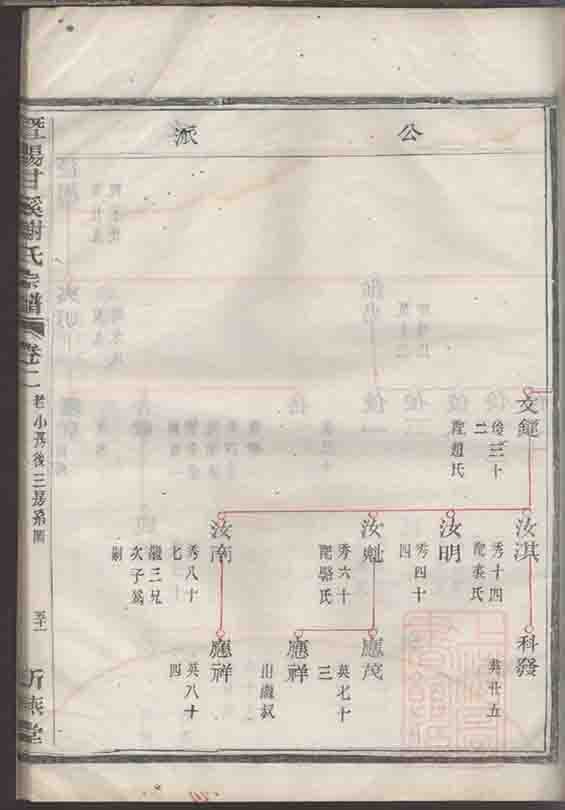 公派
文鋌
俊三十二
配趙氏
汝淇
秀十四
配袁氏
汝明
秀四十四
汝魁
秀六十
配駱氏
汝南
秀八十七
繼三兄
次子為
嗣
科發
英廿五
應茂
英七十三
應祥
出繼叔
應祥
英八十四
暨陽甘溪謝氏宗譜
卷二
老小房後三房系圖
五十一